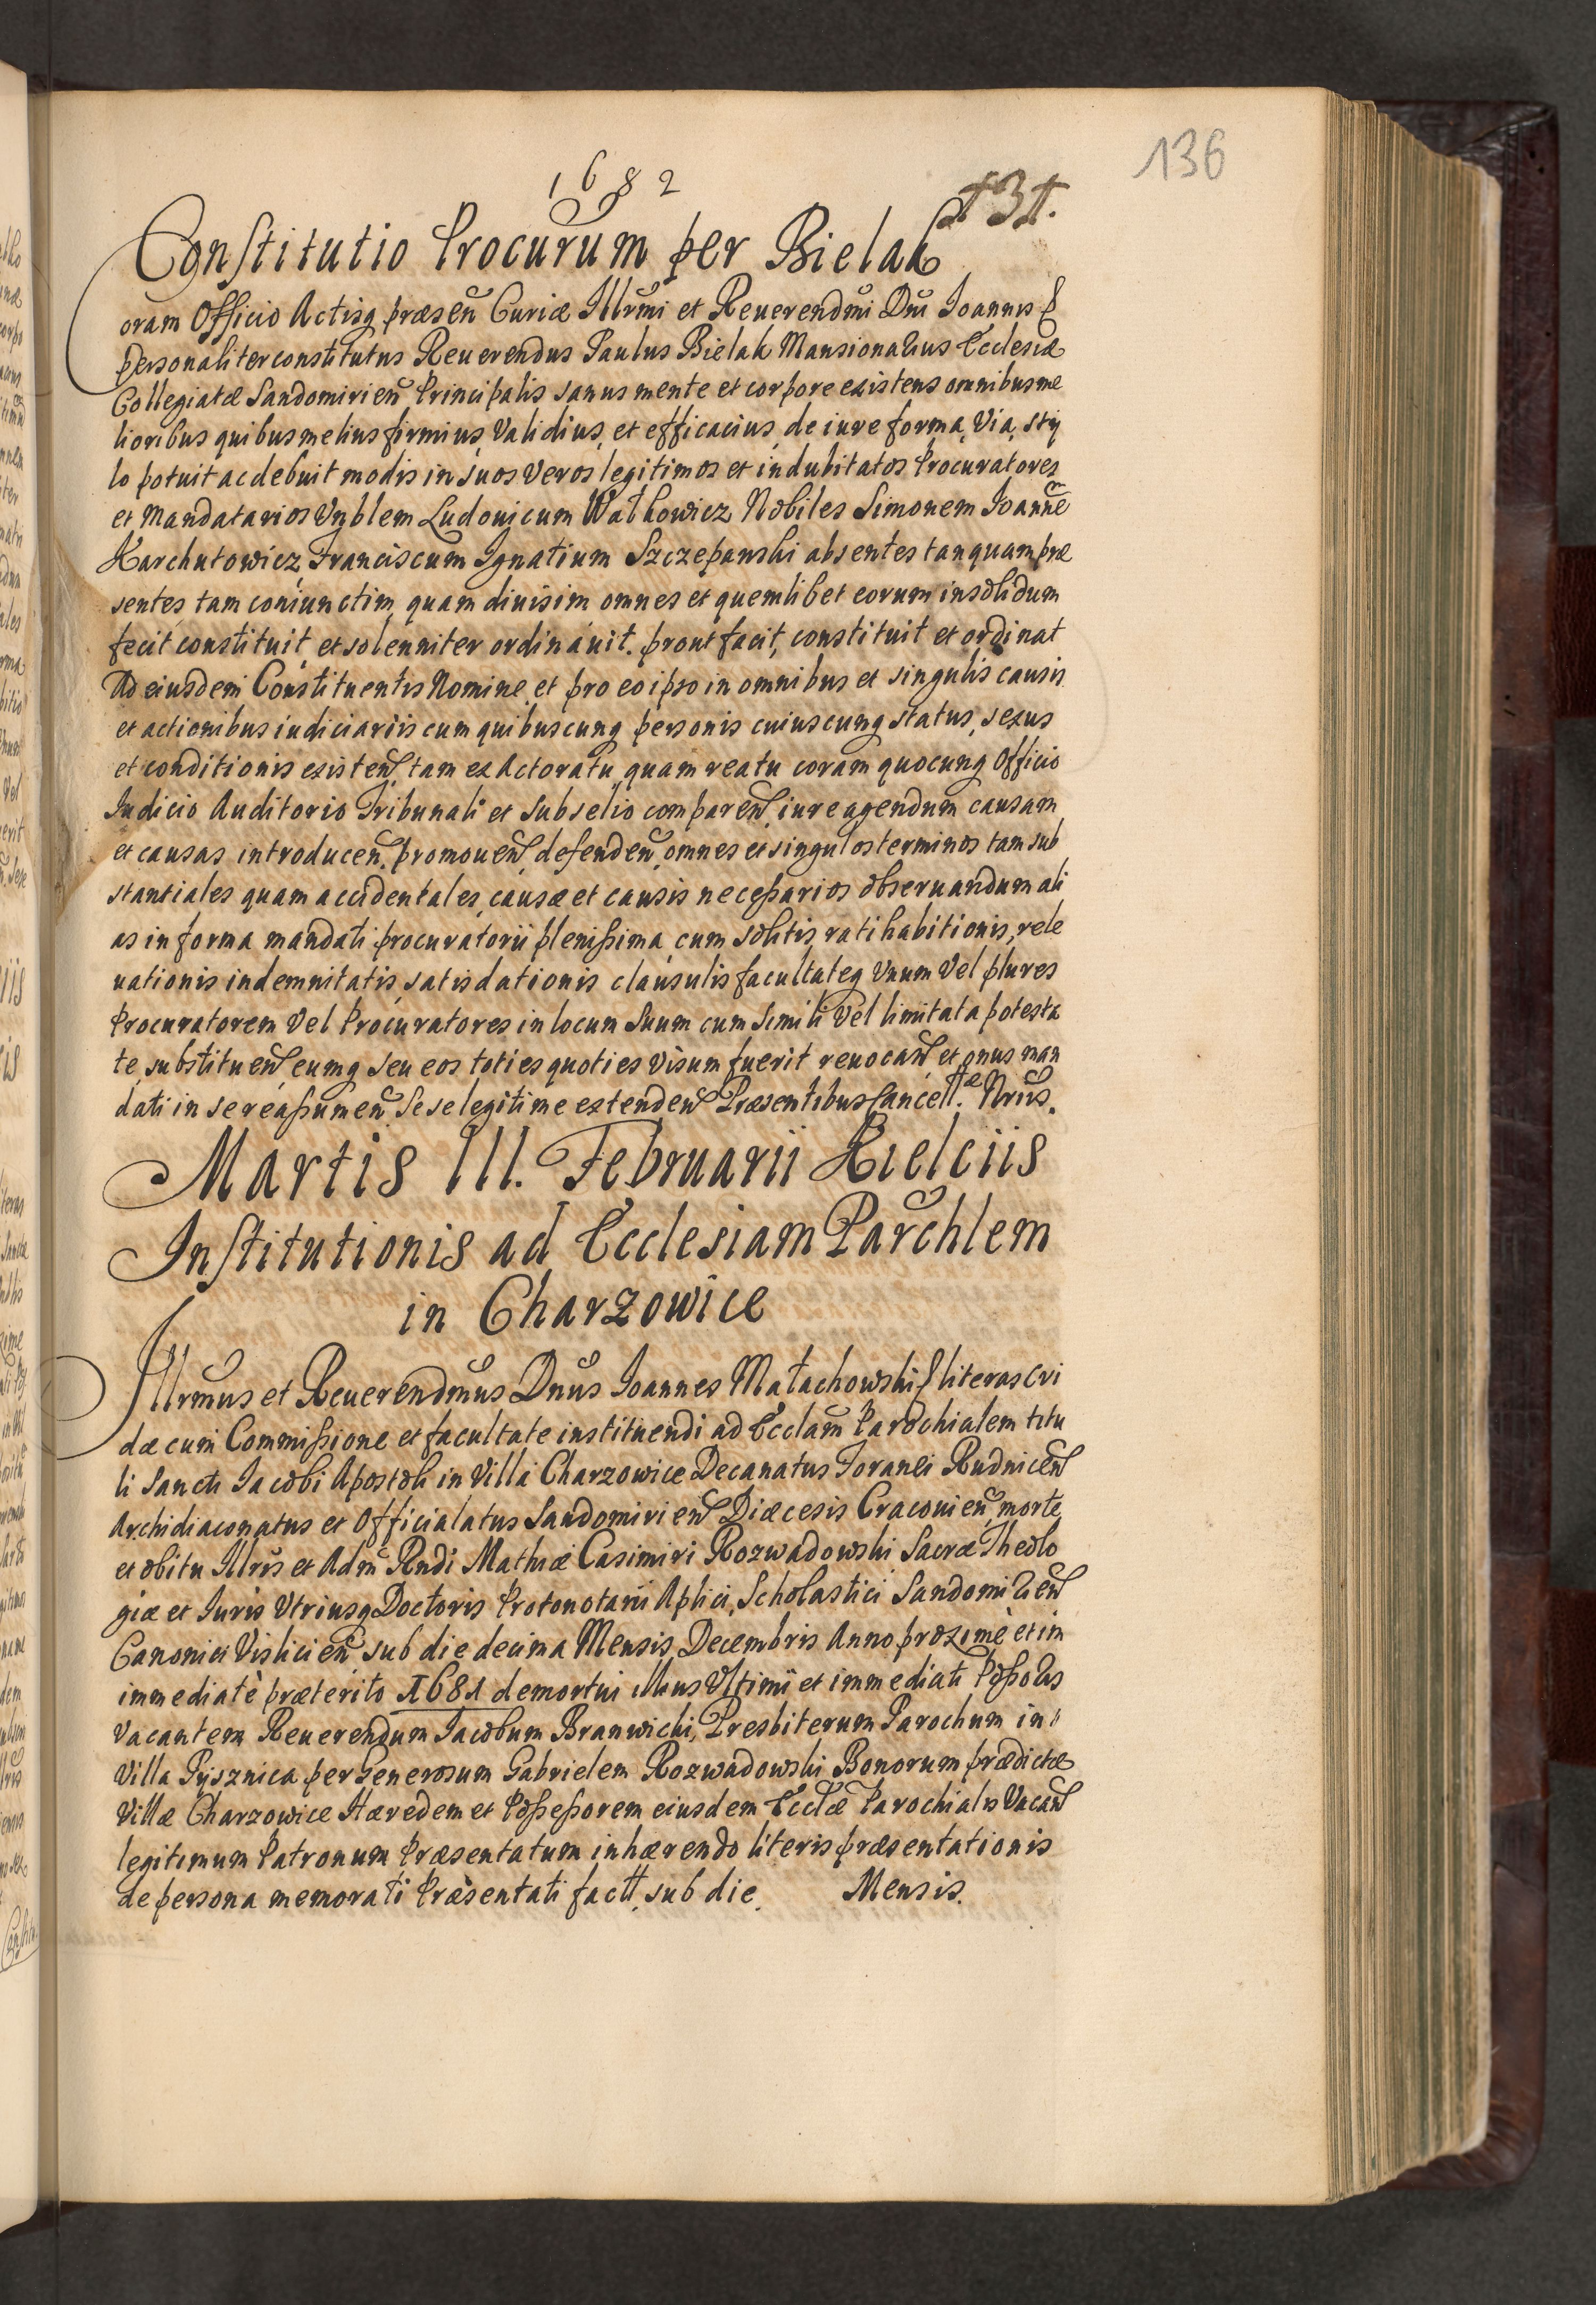 136
1682
131.
Constitutio Procurum per Bielak
Coram Officio Actisq præsen Curiæ Illrmi et Reuerendmi Dni Joannis
personaliter constitutus Reuerendus Paulus Bielak Mansionarius Ecclesiæ
Collegiatæ Sandomirien Principalis sanus mente et corpore existens omnibus me
lioribus quibus melius firmius, Validius, et efficacius, de iure forma, Via, sty
lo potuit ac debuit modis in suos Veros legitimos et indubitatos Procuratores
et Mandatarios Vnblem Ludouicum Wałkowicz Nobiles Simonem Joannem
Karchutowicz, Franciscum Ignatium Szczepanski absentes tanquam præ
sentes tam coniunctim quam diuisim omnes et quemlibet eorum insolidum
fecit constituit, et solenniter ordinauit. prout facit, constituit et ordinat
Ad eiusdem Constituentis Nomine, et pro eo ipso in omnibus et singulis causis
et actionibus iudiciariis cum quibuscunq personis cuiuscunq status, sexus
et conditionis existen, tam ex Actoratu quam reatu coram quocunq Officio
Iudicio Auditorio Tribunali et Subselio comparen, iure agendum causam
et causas introducen, promouen, defenden, omnes et singulos terminos tam sub
stantiales quam accidentales, causæ et causis necessarios obseruandum ali
as in forma mandati procuratorii plenissima cum solitis ratihabitionis, rele
uationis indemnitatis, satisdationis clausulis facultateq Vnum Vel plures
Procuratorem Vel Procuratores in locum Suum cum Simili Vel limitata potesta
te substituen eumq seu eos toties quoties Visum fuerit reuocan et onus man
dati in se reassumen Sese legitime extenden Præsentibus Cancellæ Nrius.
Martis III. Februarii Kielciis
Institutionis ad Ecclesiam Parchlem
in Charzowice
Illrmus et Reuerendmus Dnus Joannes Małachowski literas Cri
dæ cum Commissione et facultate instituendi ad Ecclam Parochialem titu
li Sancti Jacobi Apostoli in Villa Charzowice Decanatus Foranei Rudnicen
Archidiaconatus et Officialatus Sandomirien Diæcesis Cracouien, morte
et obitu Illris et Adm Rndi Mathiæ Casimiri Rozwadowski Sacræ Theolo
giæ et Iuris Vtriusq Doctoris Protonotarii Aplici, Scholastici Sandomirien
Canonici Vislicien sub die decima Mensis Decembris Anno proxime et im
immediatè præterito 1681 demortui illius Vltimi et immediati Possoris
Vacantem Reuerendum Jacobum Branwicki, Presbiterum Parochum in
Villa Pysznica per Generosum Gabrielem Rozwadowski Bonorum prædictæ
Villæ Charzowice Hæredem et Possessorem eiusdem Ecclæ Parochialis Vacan
legitimum Patronum Præsentatum inhærendo literis præsentationis
de persona memorati Præsentati factt, sub die Mensis.